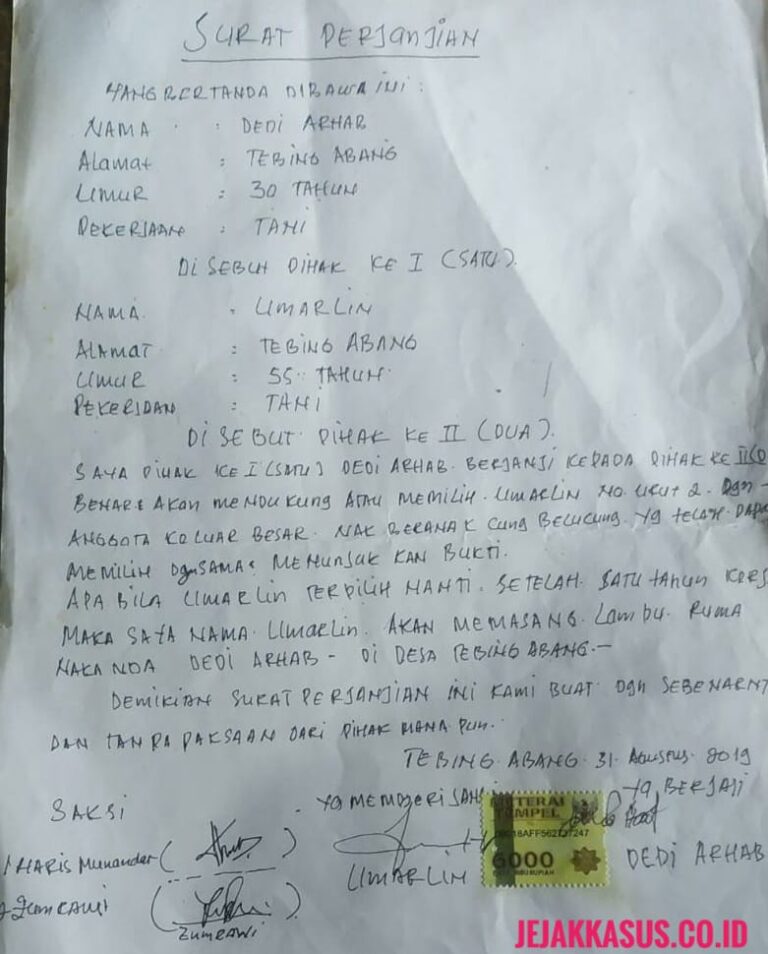 SURAT PERJANJIAN
YANG BERTANDA DIBAWA INI :
NAMA : DEDI ARHAB
Alamat : TEBING ABANG
UMUR : 30 TAHUN
PEKERJAAN : TANI
DI SEBUH PIHAK KE I (SATU).
NAMA : UMARLIN
ALAMAT : TEBING ABANG
UMUR : 55 TAHUN
PEKERJDAN : TANI
DI SEBUT PIHAK KE II (DUA).
SAYA PIHAK KE I (SATU) DEDI ARHAB. BERJANJI KEPADA PIHAK KE II (D
BENAR2 AKAN MENDUKUNG ATAU MEMILIH. UMARLIN NO. URUT 2. Dgn -
ANGGOTA KELUAR BESAR. NAK BERANAK CUNG BELUCUNG. Yg TELAH. DAPA
MEMILIH Dgn SAMA2 MENUNJUK KAN BUKTI.
APA BILA UMARLIN TERPILIH NANTI. SETELAH. SATU tAHUN KERJ
MAKA SAYA NAMA. UMARLIN. AKAN MEMASANG. LAMPU. RUMA
NAKANDA DEDI ARHAB - DI DESA TEBING ABANG.-
DEMIKIAN SURAT PERJANJIAN INI KAMI BUAT Dgn SEBENARNY
DAN TANPA PAKSAAN DARI PIHAK MANA PUN.
TEBING ABANG. 31. AGUSTUS. 2019
SAKSI
Yg MEMBERI JANJI
Yg BERJAJI
METERAI
TEMPEL
6000
ENAM RIBU RUPIAH
1 HARIS Munandar ( )
UMARLIN
DEDI ARHAB
2 Zumrawi ( )
ZUMRAWI
JEJAKKASUS.CO.ID